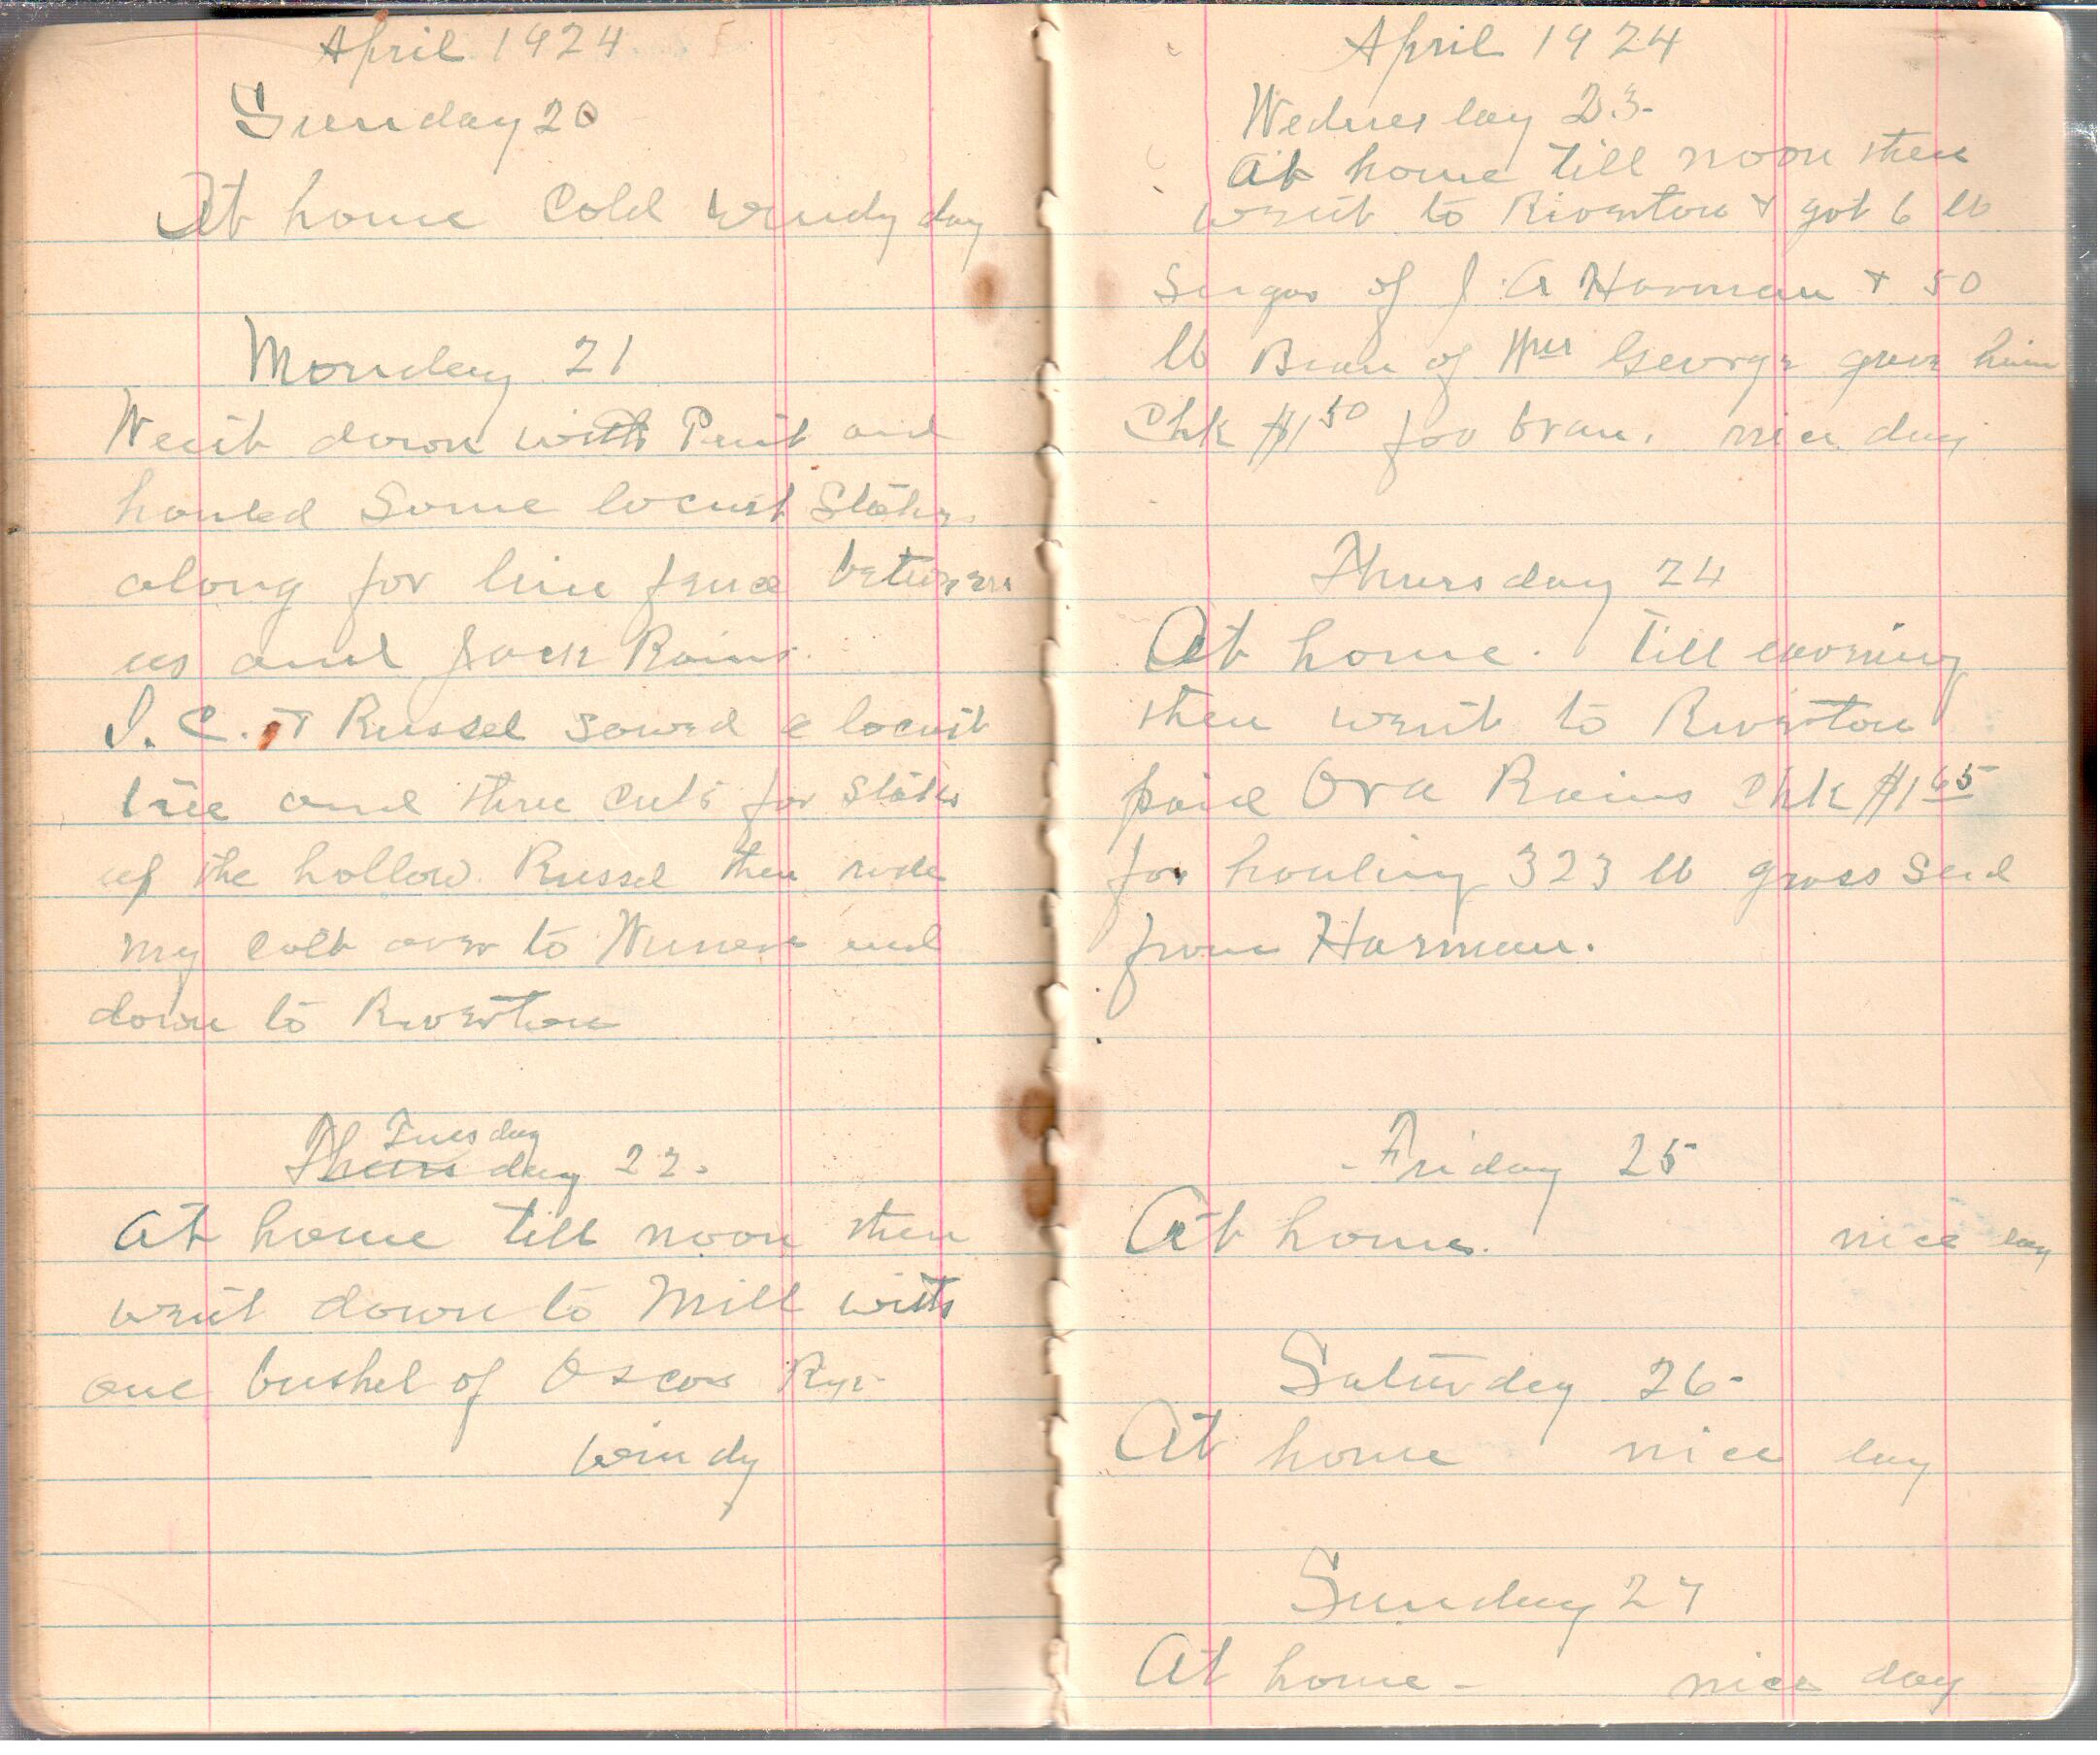 April 1924
Sunday 20
At home Cold Windy day
Monday 21
Went down with and
hauled Some locust Stakes
along for line fence between
us and Jack Rains.
I. C. & Russel sawed a locust
tree and three cuts for Stakes
up the hollow. Russel then rode
my colt over to and
down to Riverton
Tuesday
Thursday 22.
At home till noon then
went down to Mill with
one bushel of Oscar Rye.
Windy
April 1924
Wednesday 23-
At home till noon then
went to Riverton & got 6 lb
Sugar of J. A Harman & 50
lb Bran of George gave him
Chk $1 50 for bran. nice day
Thursday 24
At home. Till evening
then went to Riverton
paid Ora Rains Chk $1 65
for hauling 323 lb grass Seed
from Harman.
Friday 25
At home. nice day
Saturday 26-
At home nice day
Sunday 27
At home - nice day